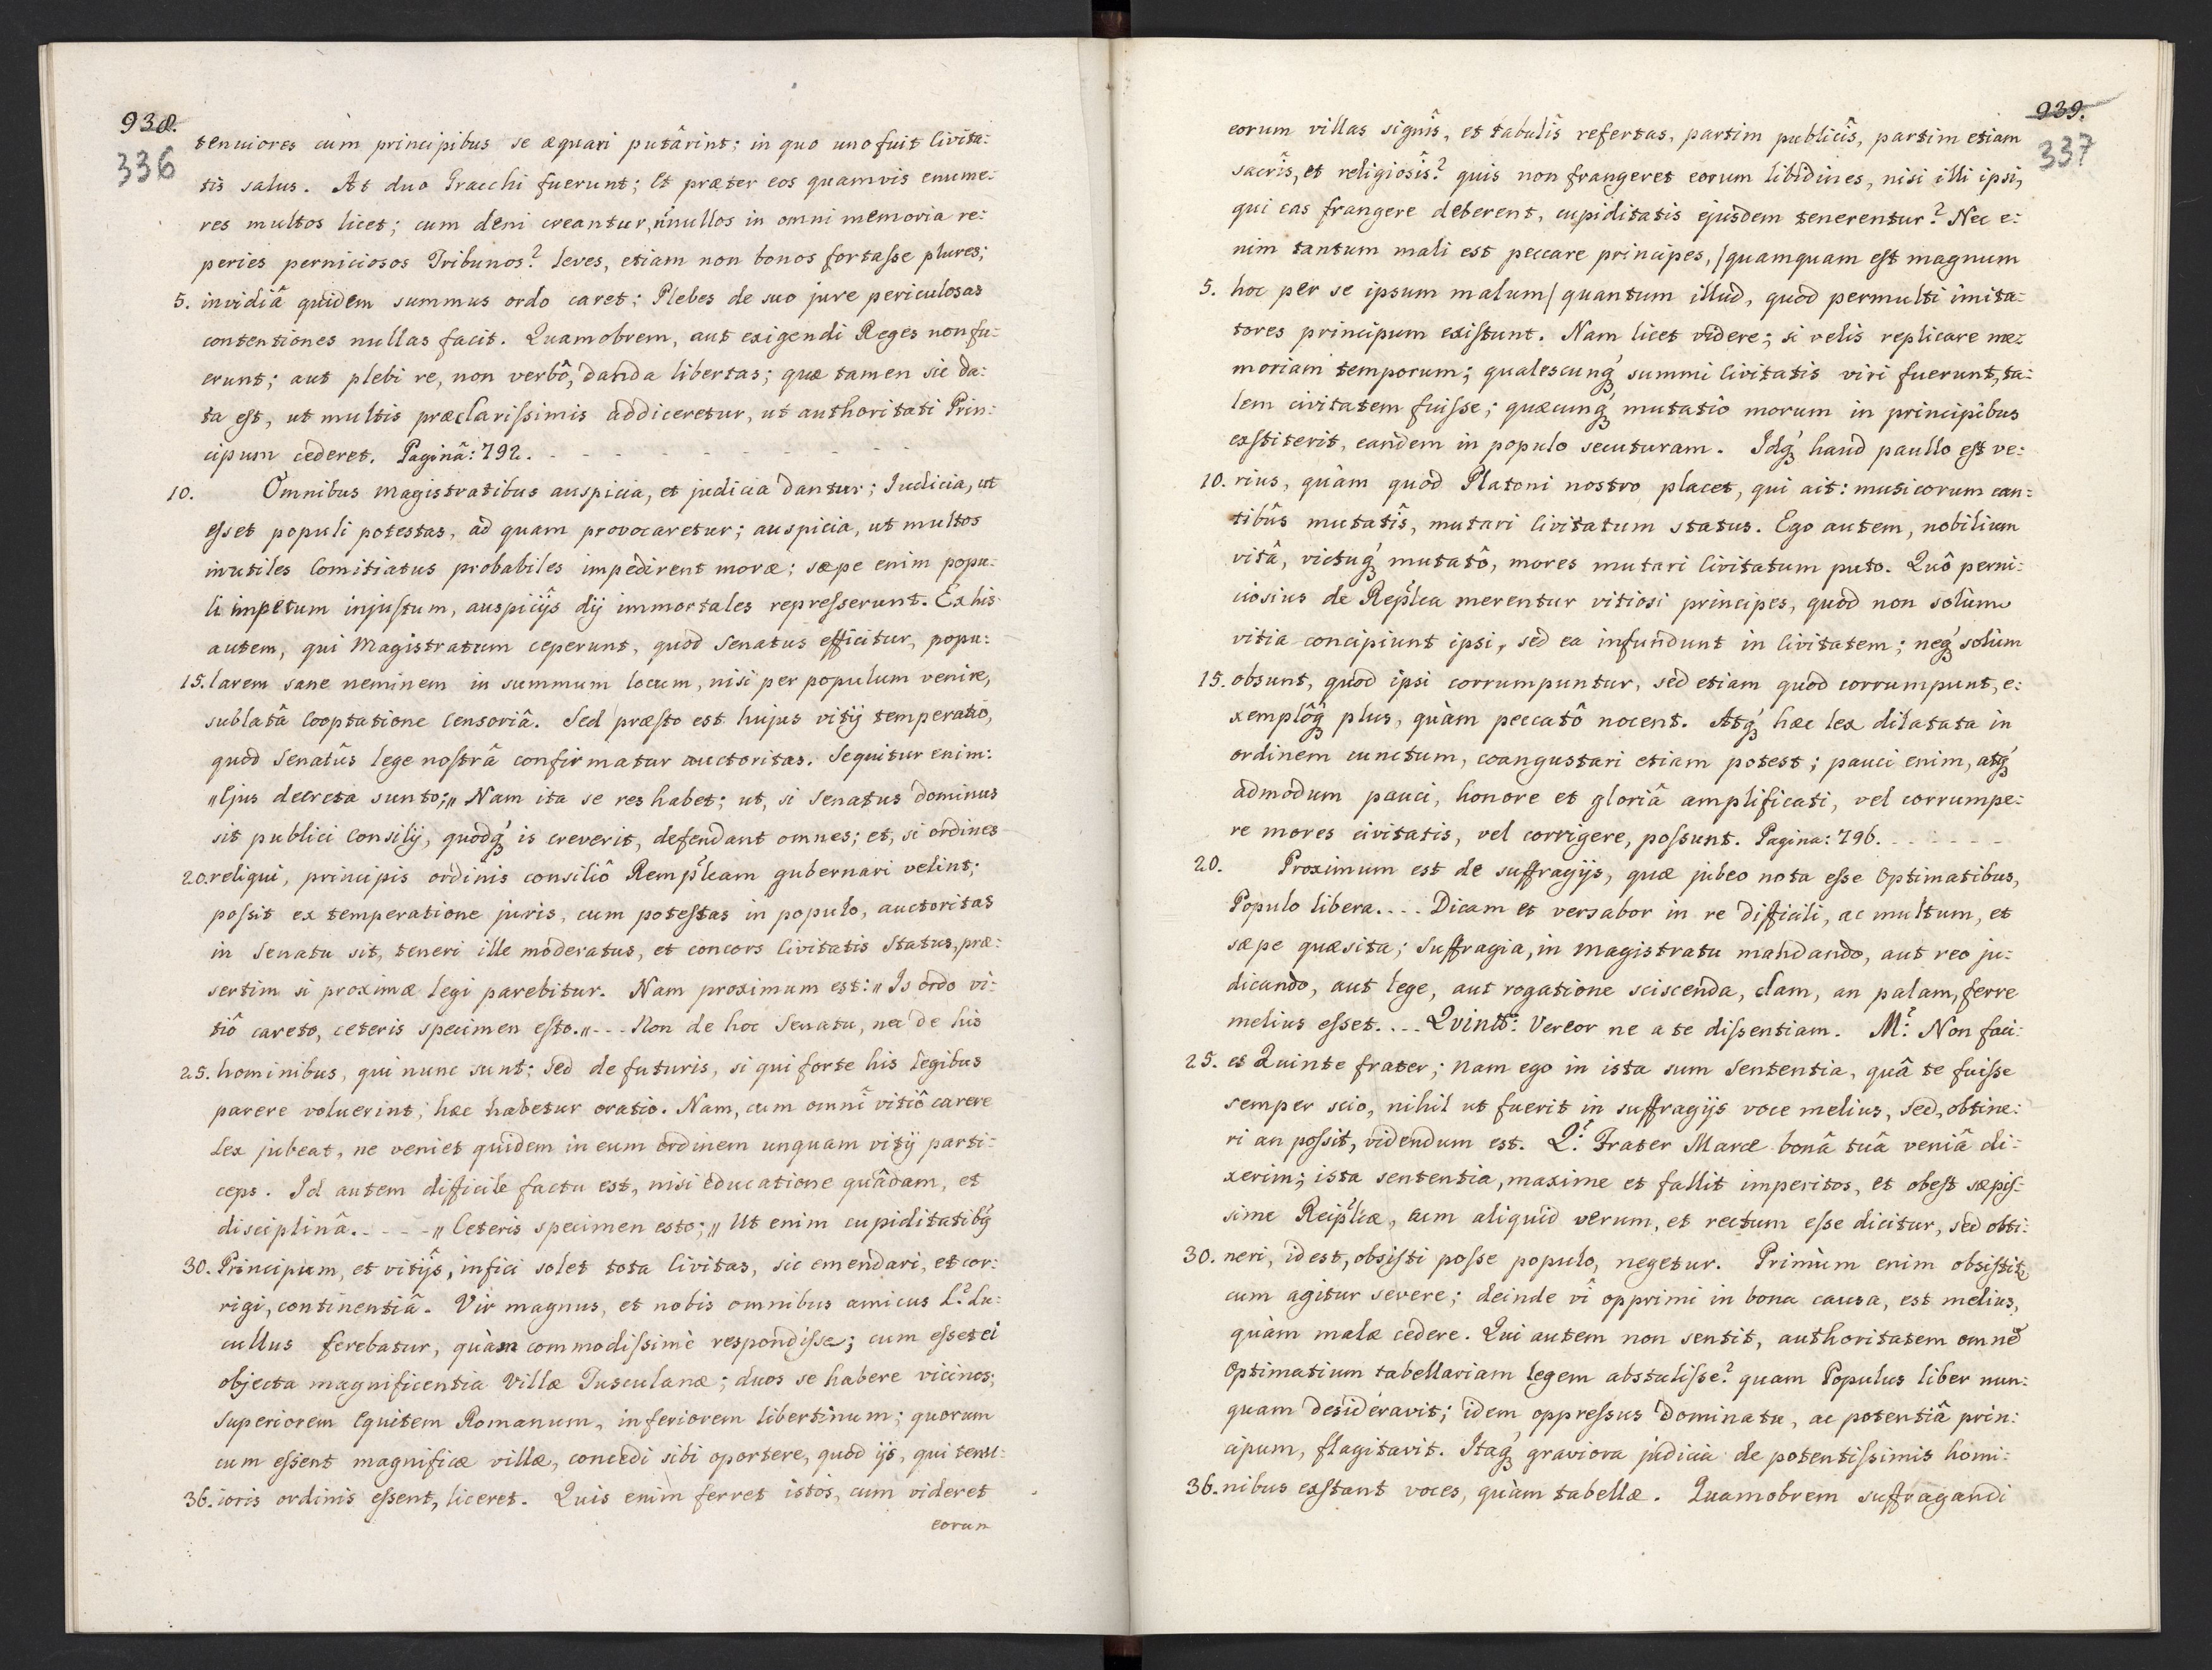 938.
336
tenuiores cùm principibus se æquari putârint; in quo uno fuit Civita:
tis salus. At duo Gracchi fuerunt; Et præter eos quamvis enume:
res multos licet; cum deni creantur, nnullos in omni memoria re:
peries perniciosos Tribunos? leves, etiam non bonos fortaſse plures;
5. invidiâ quidem summus ordo caret; Plebes de suo jure periculosas
contentiones nullas facit. Quamobrem, aut exigendi Reges non fu:
erunt; aut plebi re, non verbô, danda libertas; quæ tamen sic da:
ta eſt, ut multis præclariſsimis addiceretur, ut authoritati Prin:
cipum cederet. Paginâ: 792. - - - - - - - - - -
10. Omnibus Magistratibus auspicia, et judicia dantur; Iudicia, ut
eſset populi potestas, ad quam provocaretur; auspicia, ut multos
inutiles Comitiatus probabiles impedirent moræ; sæpe enim popu:
li impetum injuſtum, auspicijs dij immortales repreſserunt. Ex his
autem, qui Magistratum ceperunt, quod Senatus efficitur, popu:
15. larem sane neminem in summum locum, nisi per populum venire,
sublatâ Cooptatione Censoriâ. Sed præſto est hujus vitij temperatio,
quod Senatûs lege noſtrâ confirmatur auctoritas. Sequitur enim:
„Ejus decreta sunto;„ Nam ita se res habet; ut, si Senatus dominus
sit publici Consilij, quodq́ is creverit, defendant omnes; et, si ordines
20. reliqui, principis ordinis consiliô Remp̃licam gubernari velint;
poſsit ex temperatione juris, cum poteſtas in populo, auctoritas
in Senatu sit, teneri ille moderatus, et concors Civitatis Status, præ:
sertim si proximæ legi parebitur. Nam proximum est: „Is ordo vi:
tiô careto, ceteris specimen eſto.„ --- Non de hoc Senatu, nec de his
25. hominibus, qui nunc sunt; Sed de futuris, si qui forte his legibus
parere voluerint; hæc habetur oratio. Nam, cum omni vitiô carere
Lex jubeat, ne veniet quidem in eum ordinem unquam vitij parti:
ceps. Id autem difficile factu est, nisi educatione quâdam, et
disciplinâ. - - - - „Ceteris specimen esto;„ Ut enim cupiditatibq́
30. Principum, et vitijs, infici solet tota Civitas, sic emendari, et cor:
rigi, continentiâ. Vir magnus, et nobis omnibus amicus L: Lu:
cullus ferebatur, quàm commodiſsimè respondiſse; cum eſset ei
objecta magnificentia Villæ Tusculanæ; duos se habere vicinos;
Superiorem Equitem Romanum, inferiorem libertinum; quorum
cum eſsent magnificæ villæ, concedi sibi oportere, quod ijs, qui tenu:
36. ioris ordinis eſsent, liceret. Quis enim ferret istos, cum videret
eorum
939.
337
eorum villas signîs, et tabulîs refertas, partim publicîs, partim etiam
sacrîs, et religiosîs? quis non frangeret eorum libidines, nisi illi ipsi,
qui eas frangere deberent, cupiditatis ejusdem tenerentur? Nec e:
nim tantum mali est peccare principes, /quamquam eſt magnum
5. hoc per se ipsum malum/ quantum illud, quod permulti imita:
tores principum existunt. Nam licet videre; si velis replicare me:
moriam temporum; qualescunq́ summi Civitatis viri fuerunt, ta:
lem civitatem fuiſse; quæcunq́ mutatio morum in principibus
exſtiterit, eandem in populo secuturam. Idq́ haud paullo eſt ve:
10. rius, quàm quod Platoni nostro placet, qui ait: musicorum can:
tibûs mutatîs, mutari Civitatum status. Ego autem, nobilium
vitâ, victuq́ mutatô, mores mutari Civitatum puto. Quô perni:
ciosius de Rep̃lca merentur vitiosi principes, quod non solùm
vitia concipiunt ipsi, sed ea infundunt in Civitatem; neq́ solùm
15. obsunt, quod ipsi corrumpuntur, sed etiam quod corrumpunt, e:
xemplôq́ plus, quàm peccatô nocent. Atq́ hæc lex dilatata in
ordinem cunctum, coangustari etiam potest; pauci enim, atq́
admodum pauci, honore et gloriâ amplificati, vel corrumpe:
re mores civitatis, vel corrigere, poſsunt. Pagina: 796. - - - - - -
20. Proximum est de suffragijs, quæ jubeo nota eſse Optimatibus,
Populo libera. . . . Dicam et versabor in re difficili, ac multum, et
sæpe quæsita; Suffragia, in Magistratu mandando, aut reo ju:
dicando, aut lege, aut rogatione sciscenda, clam, an palam, ferre
melius eſset. . . . Qvints: Vereor ne a te diſsentiam. M: Non faci:
25. es Quinte frater; nam ego in ista sum Sententia, quâ te fuiſse
semper scio, nihil ut fuerit in suffragijs voce melius, Sed, obtine:
ri an poſsit, videndum est. Q: Frater Marce bonâ tuâ veniâ di:
xerim; ista sententia, maxime et fallit imperitos, et obeſt sæpiſ:
sime Reip̃licæ, cum aliquid verum, et rectum eſse dicitur, sed obti:
30. neri, id est, obsiſti poſse populo, negetur. Primùm enim obsiſtit,
cum agitur severe; deinde vî opprimi in bona causa, est melius,
quàm malæ cedere. Qui autem non sentit, authoritatem omnẽ
Optimatium tabellariam legem abstuliſse? quam Populus liber nun:
quam desideravit; idem oppreſsus Dominatu, ac potentiâ prin:
cipum, flagitavit. Itaq́ graviora judicia de potentiſsimis homi:
36. nibus exſtant voces, quàm tabellæ. Quamobrem suffragandi